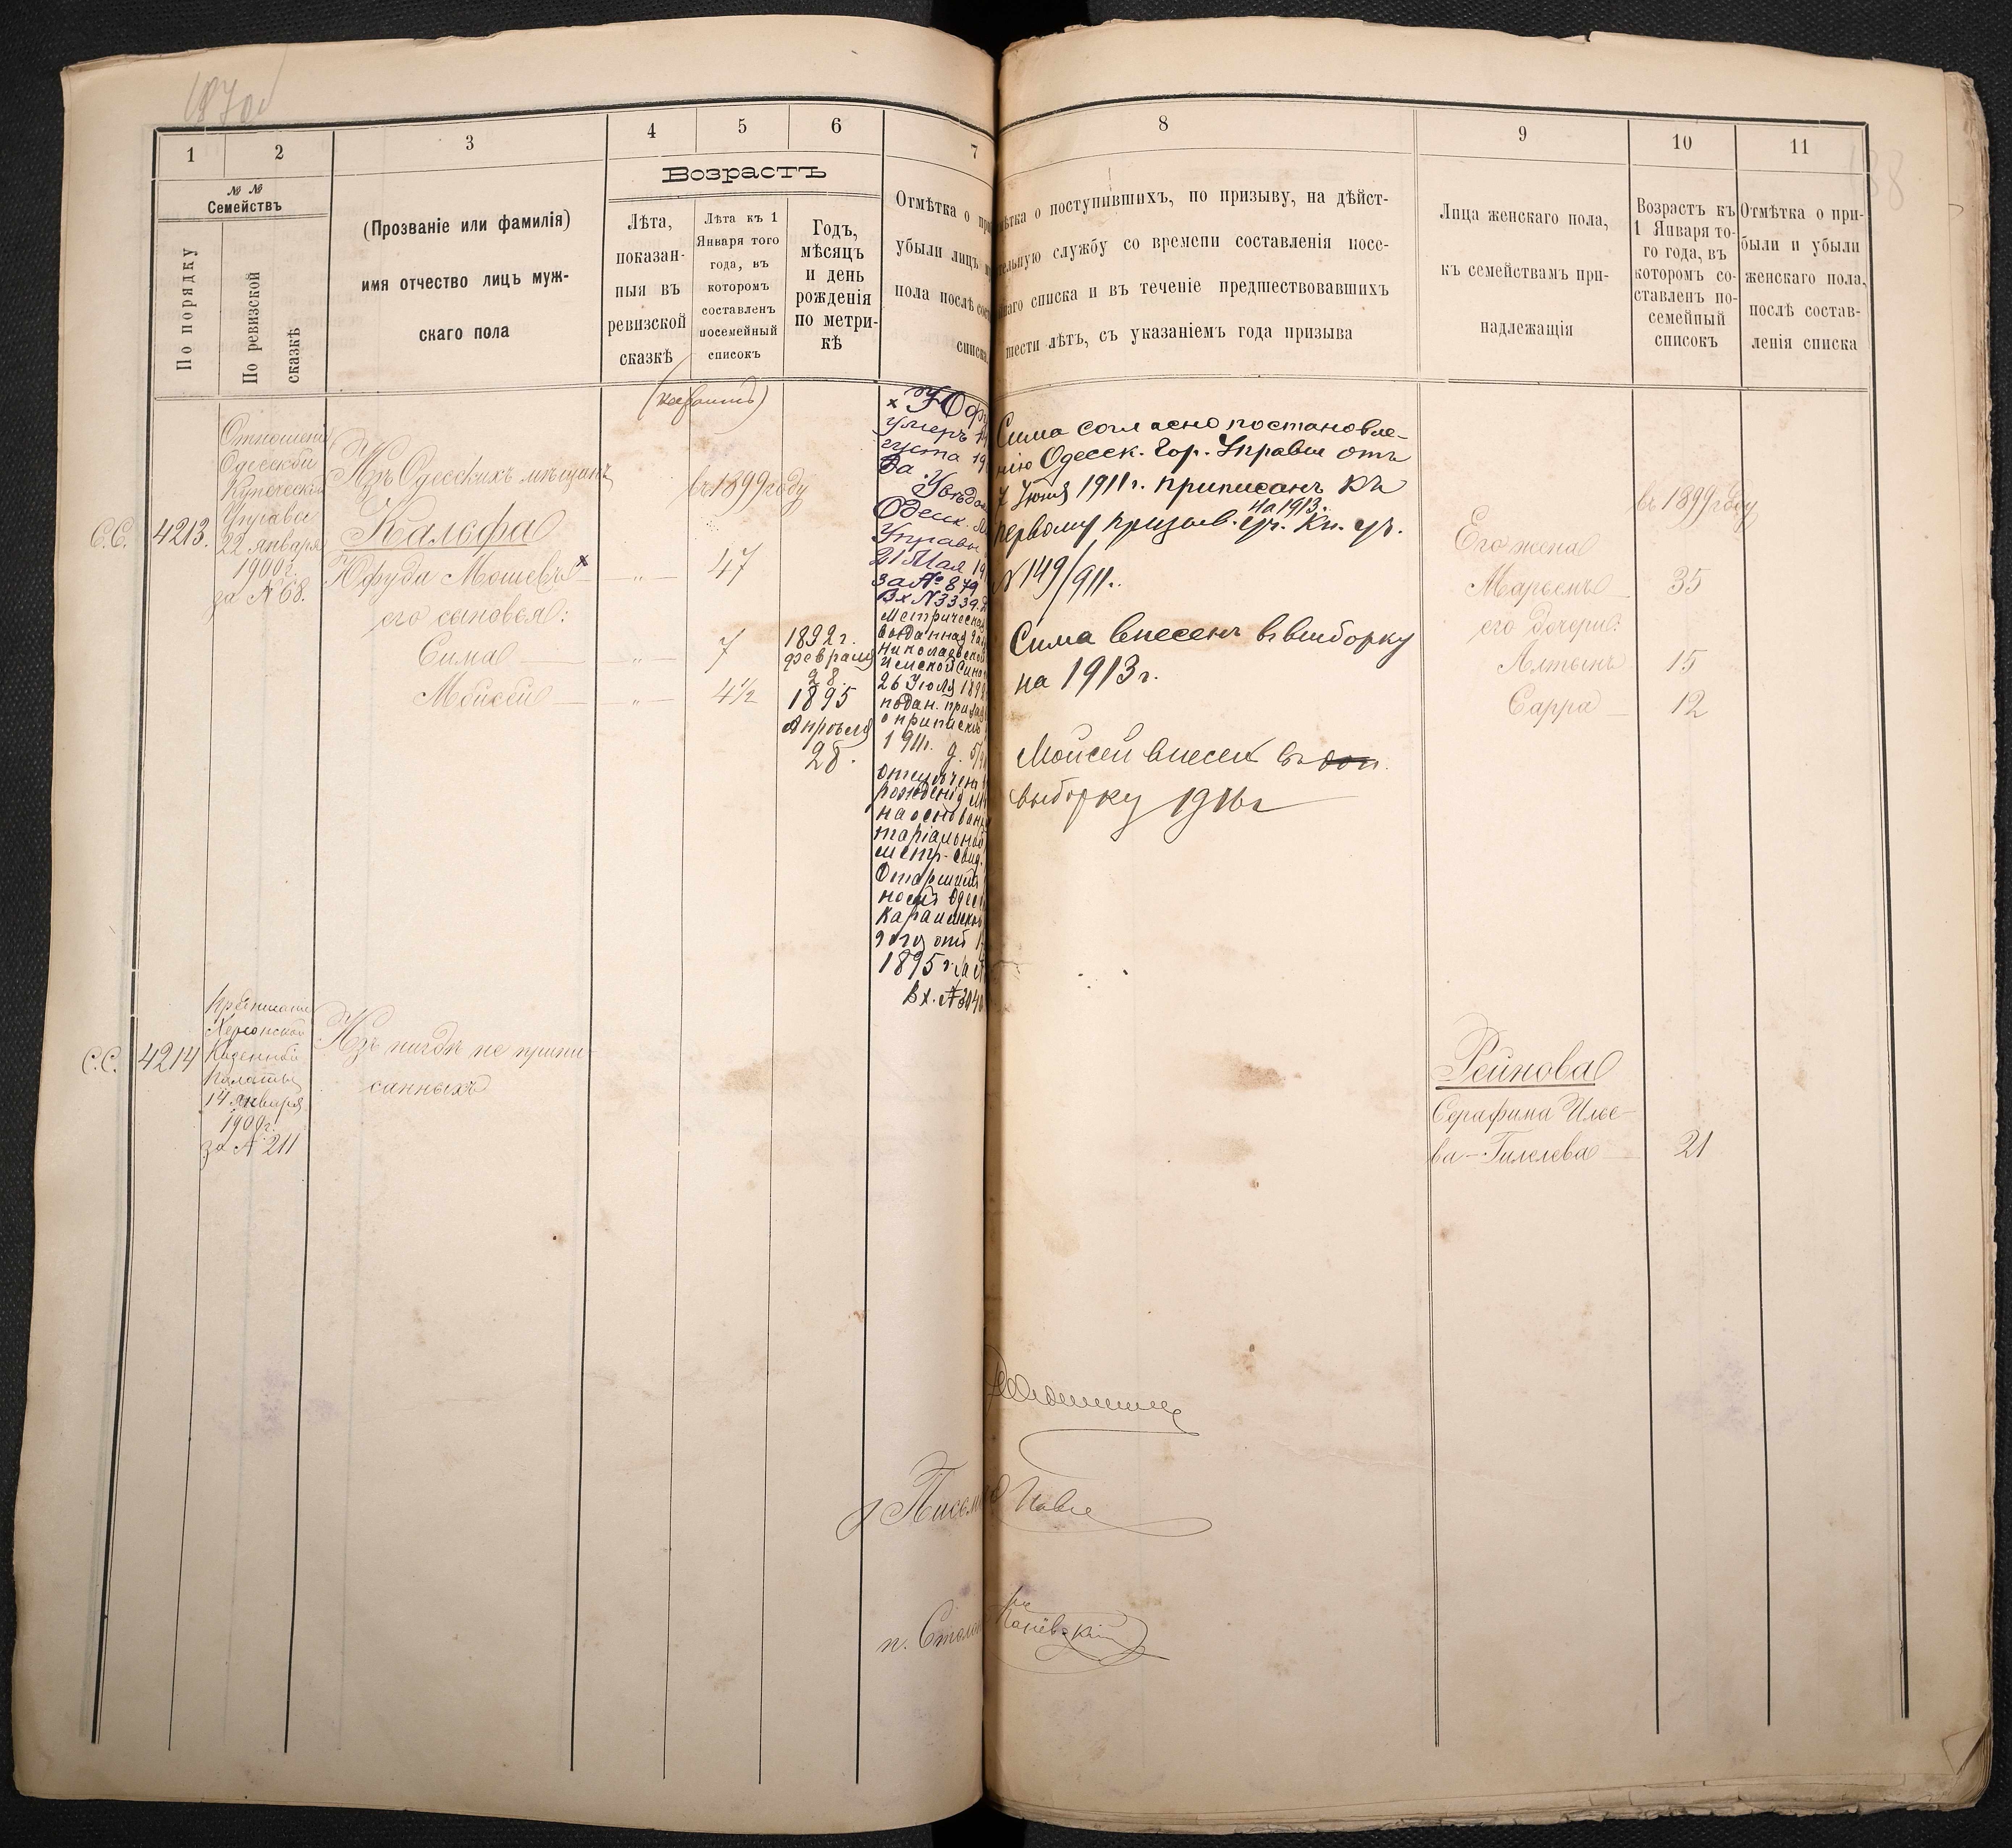 187об
1
2
3
4
5
6
7
8
9
10
11
№ №
Семействъ
По порядку
По ревизской
сказкѣ
(Прозваніе или фамилія)
имя отчество лицъ муж-
скаго пола
Возрастъ
Лѣта,
показан-
ныя въ
ревизской
сказкѣ
Лѣта къ 1
Января того
года, въ
которомъ
составленъ
посемейный
списокъ
Годъ,
мѣсяцъ
и день
рожденія
по метри-
кѣ
Отмѣтка о при
убыли лицъ
пола послѣ сост
списка
о поступившихъ, по призыву, на дѣйст-
тельную службу со времени составленія посе-
списка и въ теченіе предшествовавшихъ
шести лѣтъ, съ указаніемъ года призыва
Лица женскаго пола,
къ семействамъ при-
надлежащія
Возрастъ къ
1 Января то-
го года, въ
которомъ со-
ставленъ по-
семейный
списокъ
Отмѣтка о при-
были и убыли
женскаго пола,
послѣ состав-
ленія списка
С.С. 4213.
Отношеніе
Одесской
Купеческой
Управы
22 января
1900г.
за № 68.
(караимъ)
Изъ Одесскихъ мѣщанъ
въ 1899 году
Кальфа
Юфуда Мошевъ х — „ — 47
его сыновья:
Сима — „ — 7
1892 г.
февраля
28.
Мойсей — „ — 4½
1895
Апрѣля
28.
х Юфу
умеръ
густа 19
За Увѣдом
Одесск.
Управы
21 Мая 19
за № 879
Вх № 3339.
Метрическая
выданная
Николаевской
26 Іюля 1892
подан. при
о припискѣ
1911. д.
рожденія
на основан
таріальной
метр. свид.
Одес
Караимской
1895 г. за №
Вх. №
Сима согласно постановле-
нію Одесск. Гор. Управы отъ
7 Іюня 1911 г. приписанъ къ
на 1913.
первому призыв. уч. Кн. уч.
№ 149/911.
Сима внесенъ въ выборку
на 1913 г.
Мойсей внесен въ доп.
выборку 1916 г
въ 1899 году
Его жена
Марьемъ — 35
его дочери:
Алтынъ — 15
Сарра — 12
С.С. 4214
Предписаніе
Херсонской
Казенной
Палаты
14 января
1900г.
за № 211
Изъ нигдѣ не припи-
санныхъ
Рейнова
Серафима Илье-
ва-Гилелева — 21
п. Столон